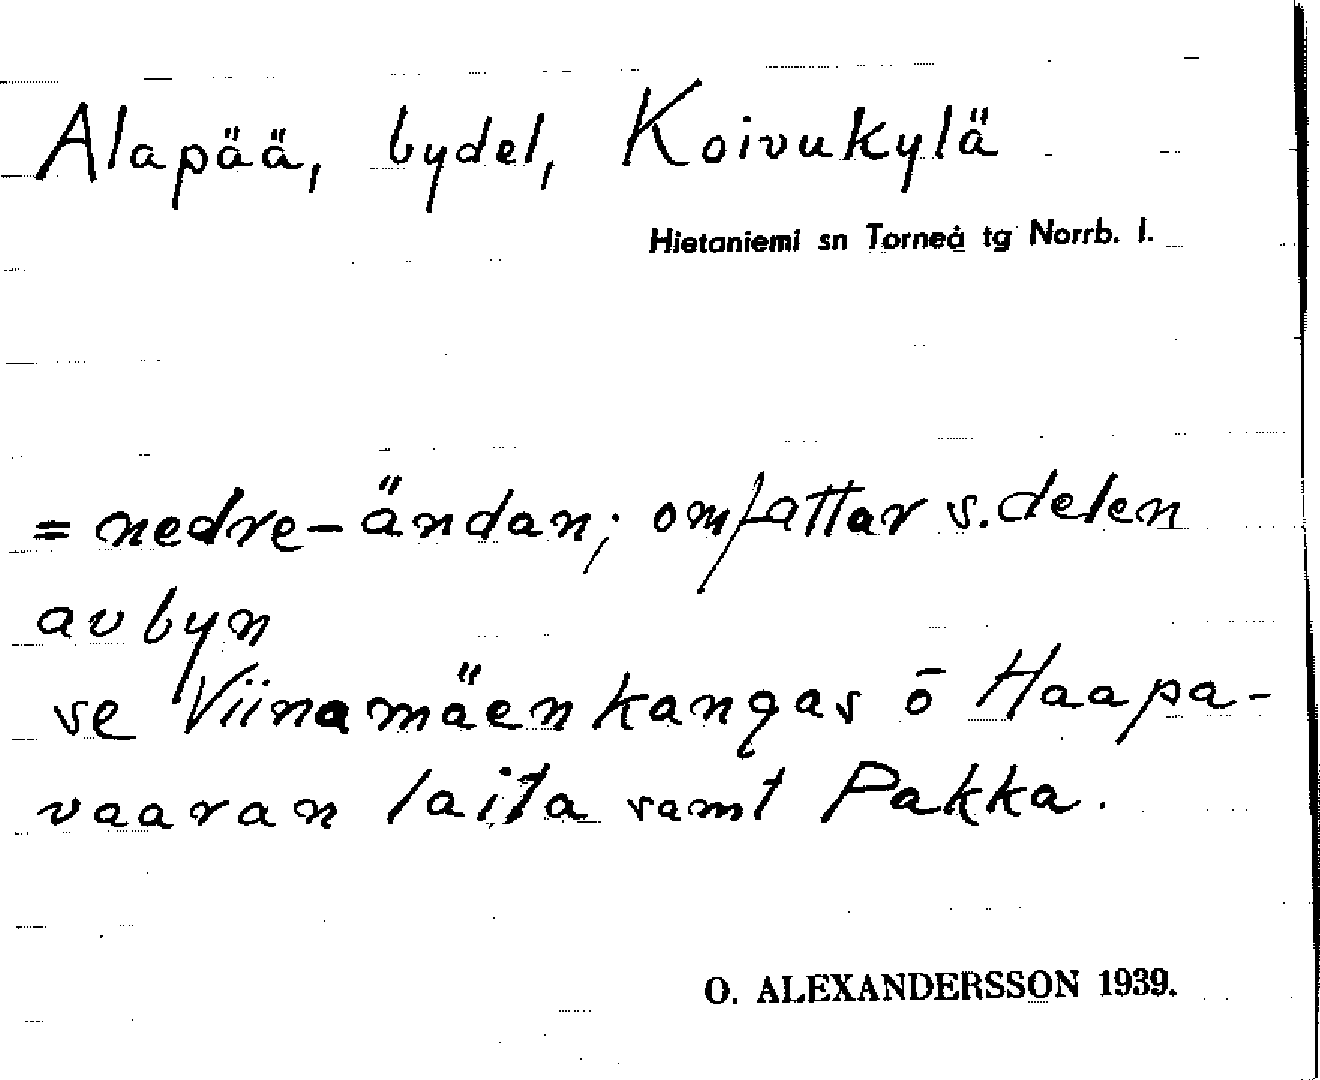 Alapää, bydel, Koivukylä
Hietaniemi sn Torneå tg Norrb. l.
= nedre-ändan; omfattar s. delen
av byn
se Viinamäenkangas ō Haapa-
vaaran laita samt Pakka.
O. ALEXANDERSSON 1939.